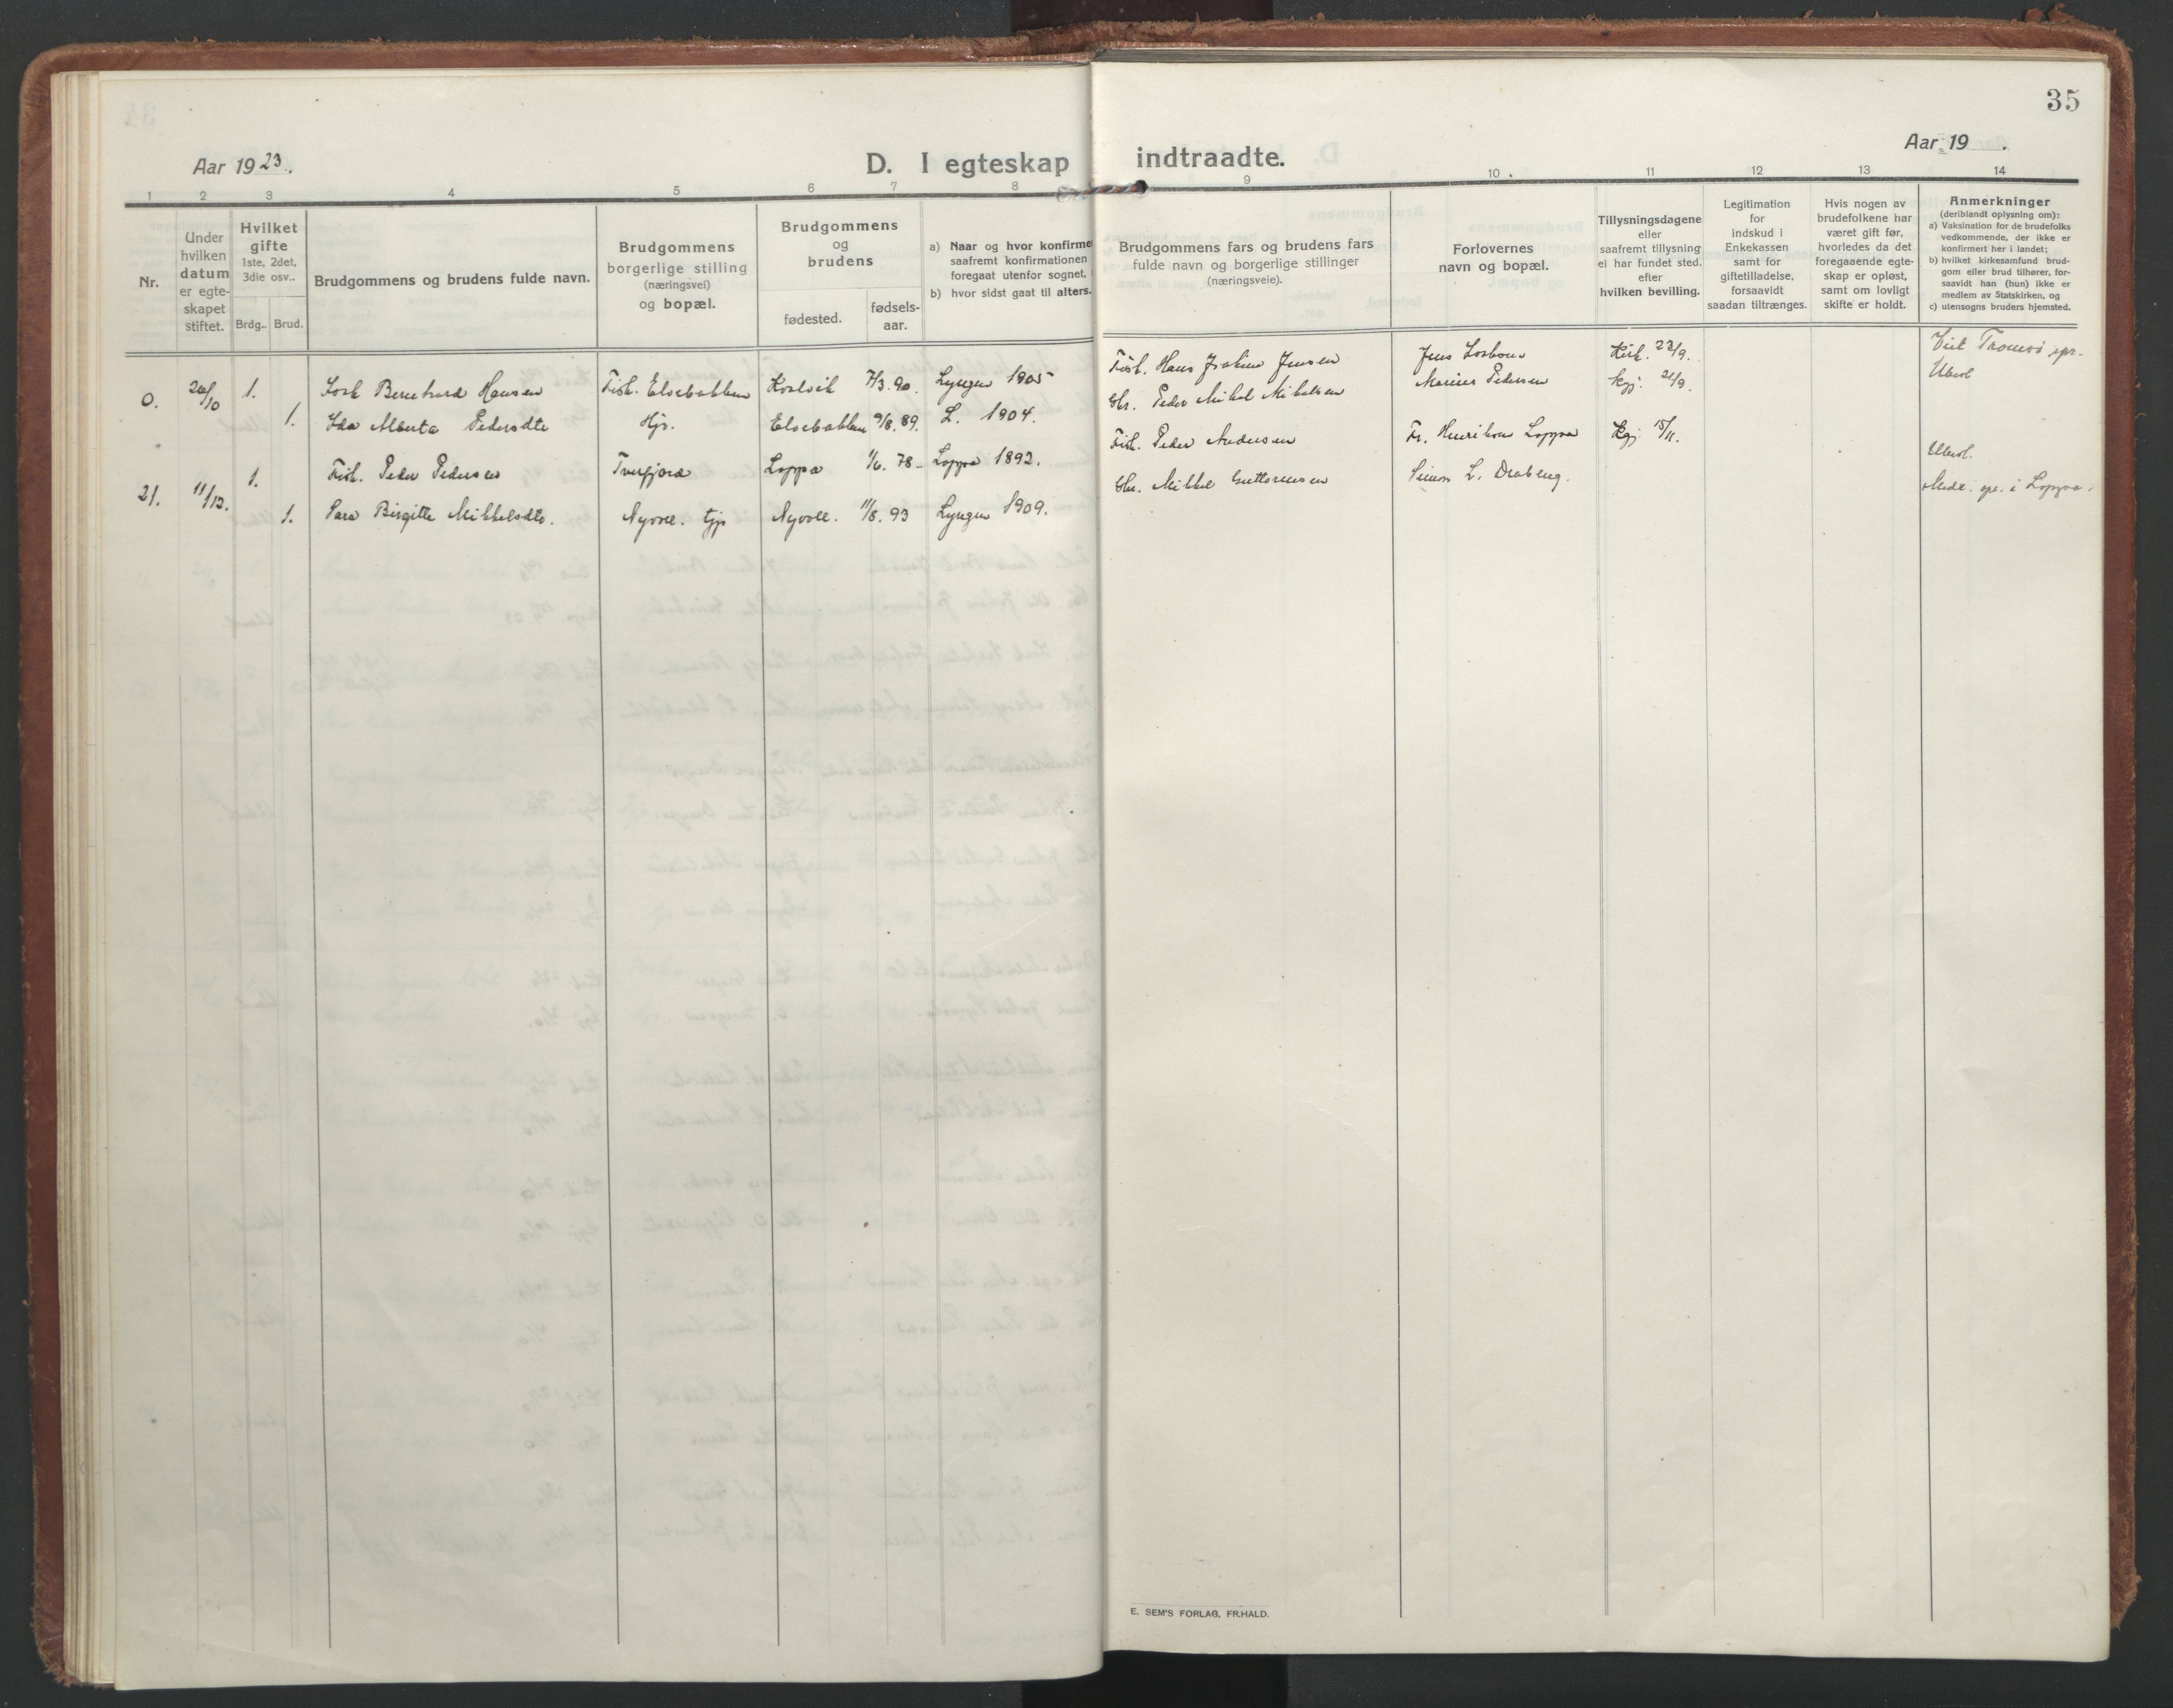 35
Aar 1923.
D. I egteskap indtraadte.
Aar 19 .
1 2 3 4 5 6 7 8 9 10 11 12 13 14
Nr.
Under hvilken datum er egte-skapet stiftet.
Hvilket gifte
1ste, 2det, 3die osv..
Brdg.. Brud.
Brudgommens og brudens fulde navn.
Brudgommens
borgerlige stilling
(næringsvei)
og bopæl.
Brudgommens
og
brudens
fødested.
fødsels-
aar.
a) Naar og hvor konfirme
saafremt konfirmationen
foregaat utenfor sognet,
b) hvor sidst gaat til alters.
Brudgommens fars og brudens fars
fulde navn og borgerlige stillinger
(næringsveie).
Forlovernes
navn og bopæl.
Tillysningsdagene
eller
saafremt tillysning
ei har fundet sted,
efter
hvilken bevilling.
Legitimation
for
indskud i
Enkekassen
samt for
giftetilladelse,
forsaavidt
saadan tiltrænges.
Hvis nogen av
brudefolkene har
været gift før,
hvorledes da det
foregaaende egte-
skap er opløst,
samt om lovligt
skifte er holdt.
Anmerkninger
(deriblandt oplysning om):
a) Vaksination for de brudefolks
vedkommende, der ikke er
konfirmert her i landet;
b) hvilket kirkesamfund brud-
gom eller brud tilhører, for-
saavidt han (hun) ikke er
medlem av Statskirken, og
c) utensogns bruders hjemsted.
0. 20/10 1. Bernhard Hansen Fisk. Elvebakken 7/3. 90. Lyngen 1905
1. Ida Alberta Pedersdtr Hjs. Elvebakken 9/8. 89. L. 1904.
Fisk. Hans Joakim Jensen Jens Kirk. 23/9.
Gbr. Peder Mikal Mikalsen Marius Pedersen kgj. 21/9.
Viet Tromsö
Ubesl.
21. 11/12. 1. Fisk. Peder Pedersen Tverfjord Loppa 1/6. 78- Loppa 1892.
1. Sara Birgitte Mikkelsdtr. Nyvoll. tjp Nyvoll. 11/8. 93 Lyngen 1909.
Fisk. Peder Andersen Fr. Henriksen Loppa kgj 15/11.
Gbr. Mikkel Guttormsen Simon L.
Ubesl.
i Loppa.
E. SEM'S FORLAG, FR.HALD.